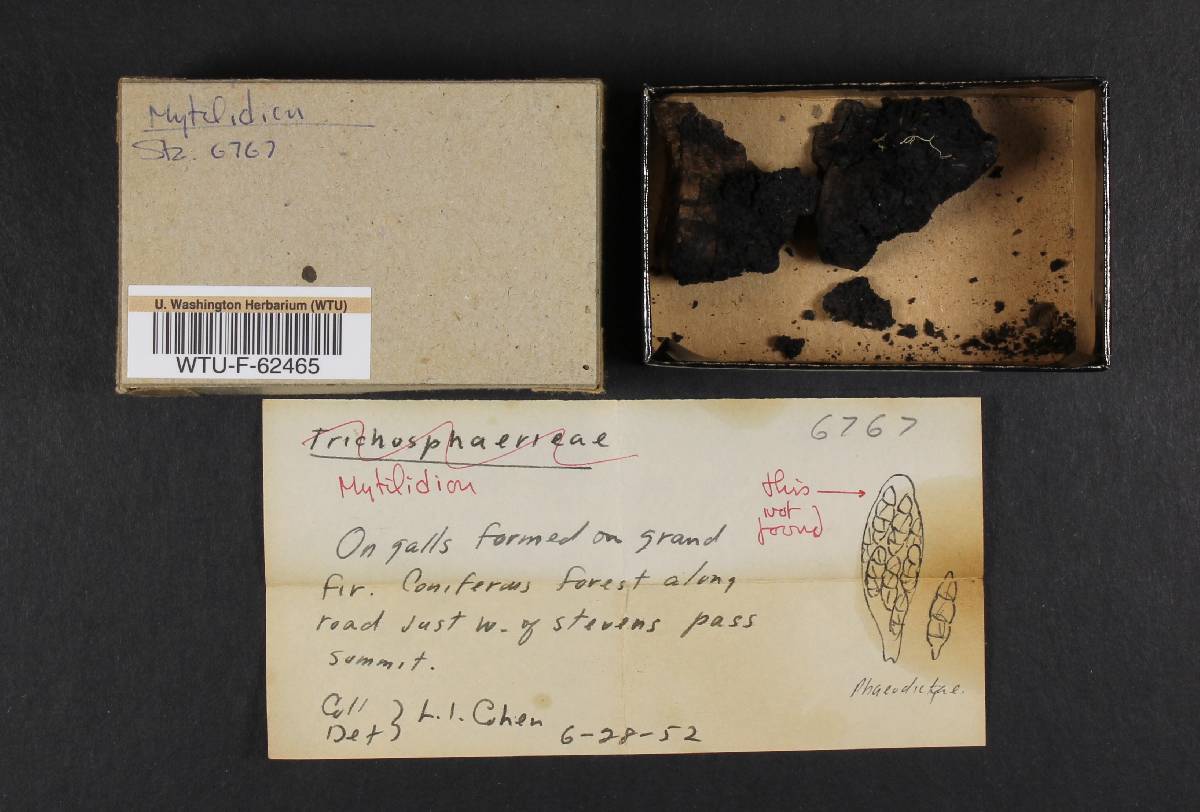 Mytilidion
Stz. 6767
U. Washington Herbarium (WTU)
WTU-F-62465
6767
Trichosphaerieae
Mytilidion
this
not
found
On galls formed on grand
fir. Coniferous forest along
road just w. of stevens pass
summit.
Coll } L.I. Cohen
Det
6-28-52
Phaeodictyae.